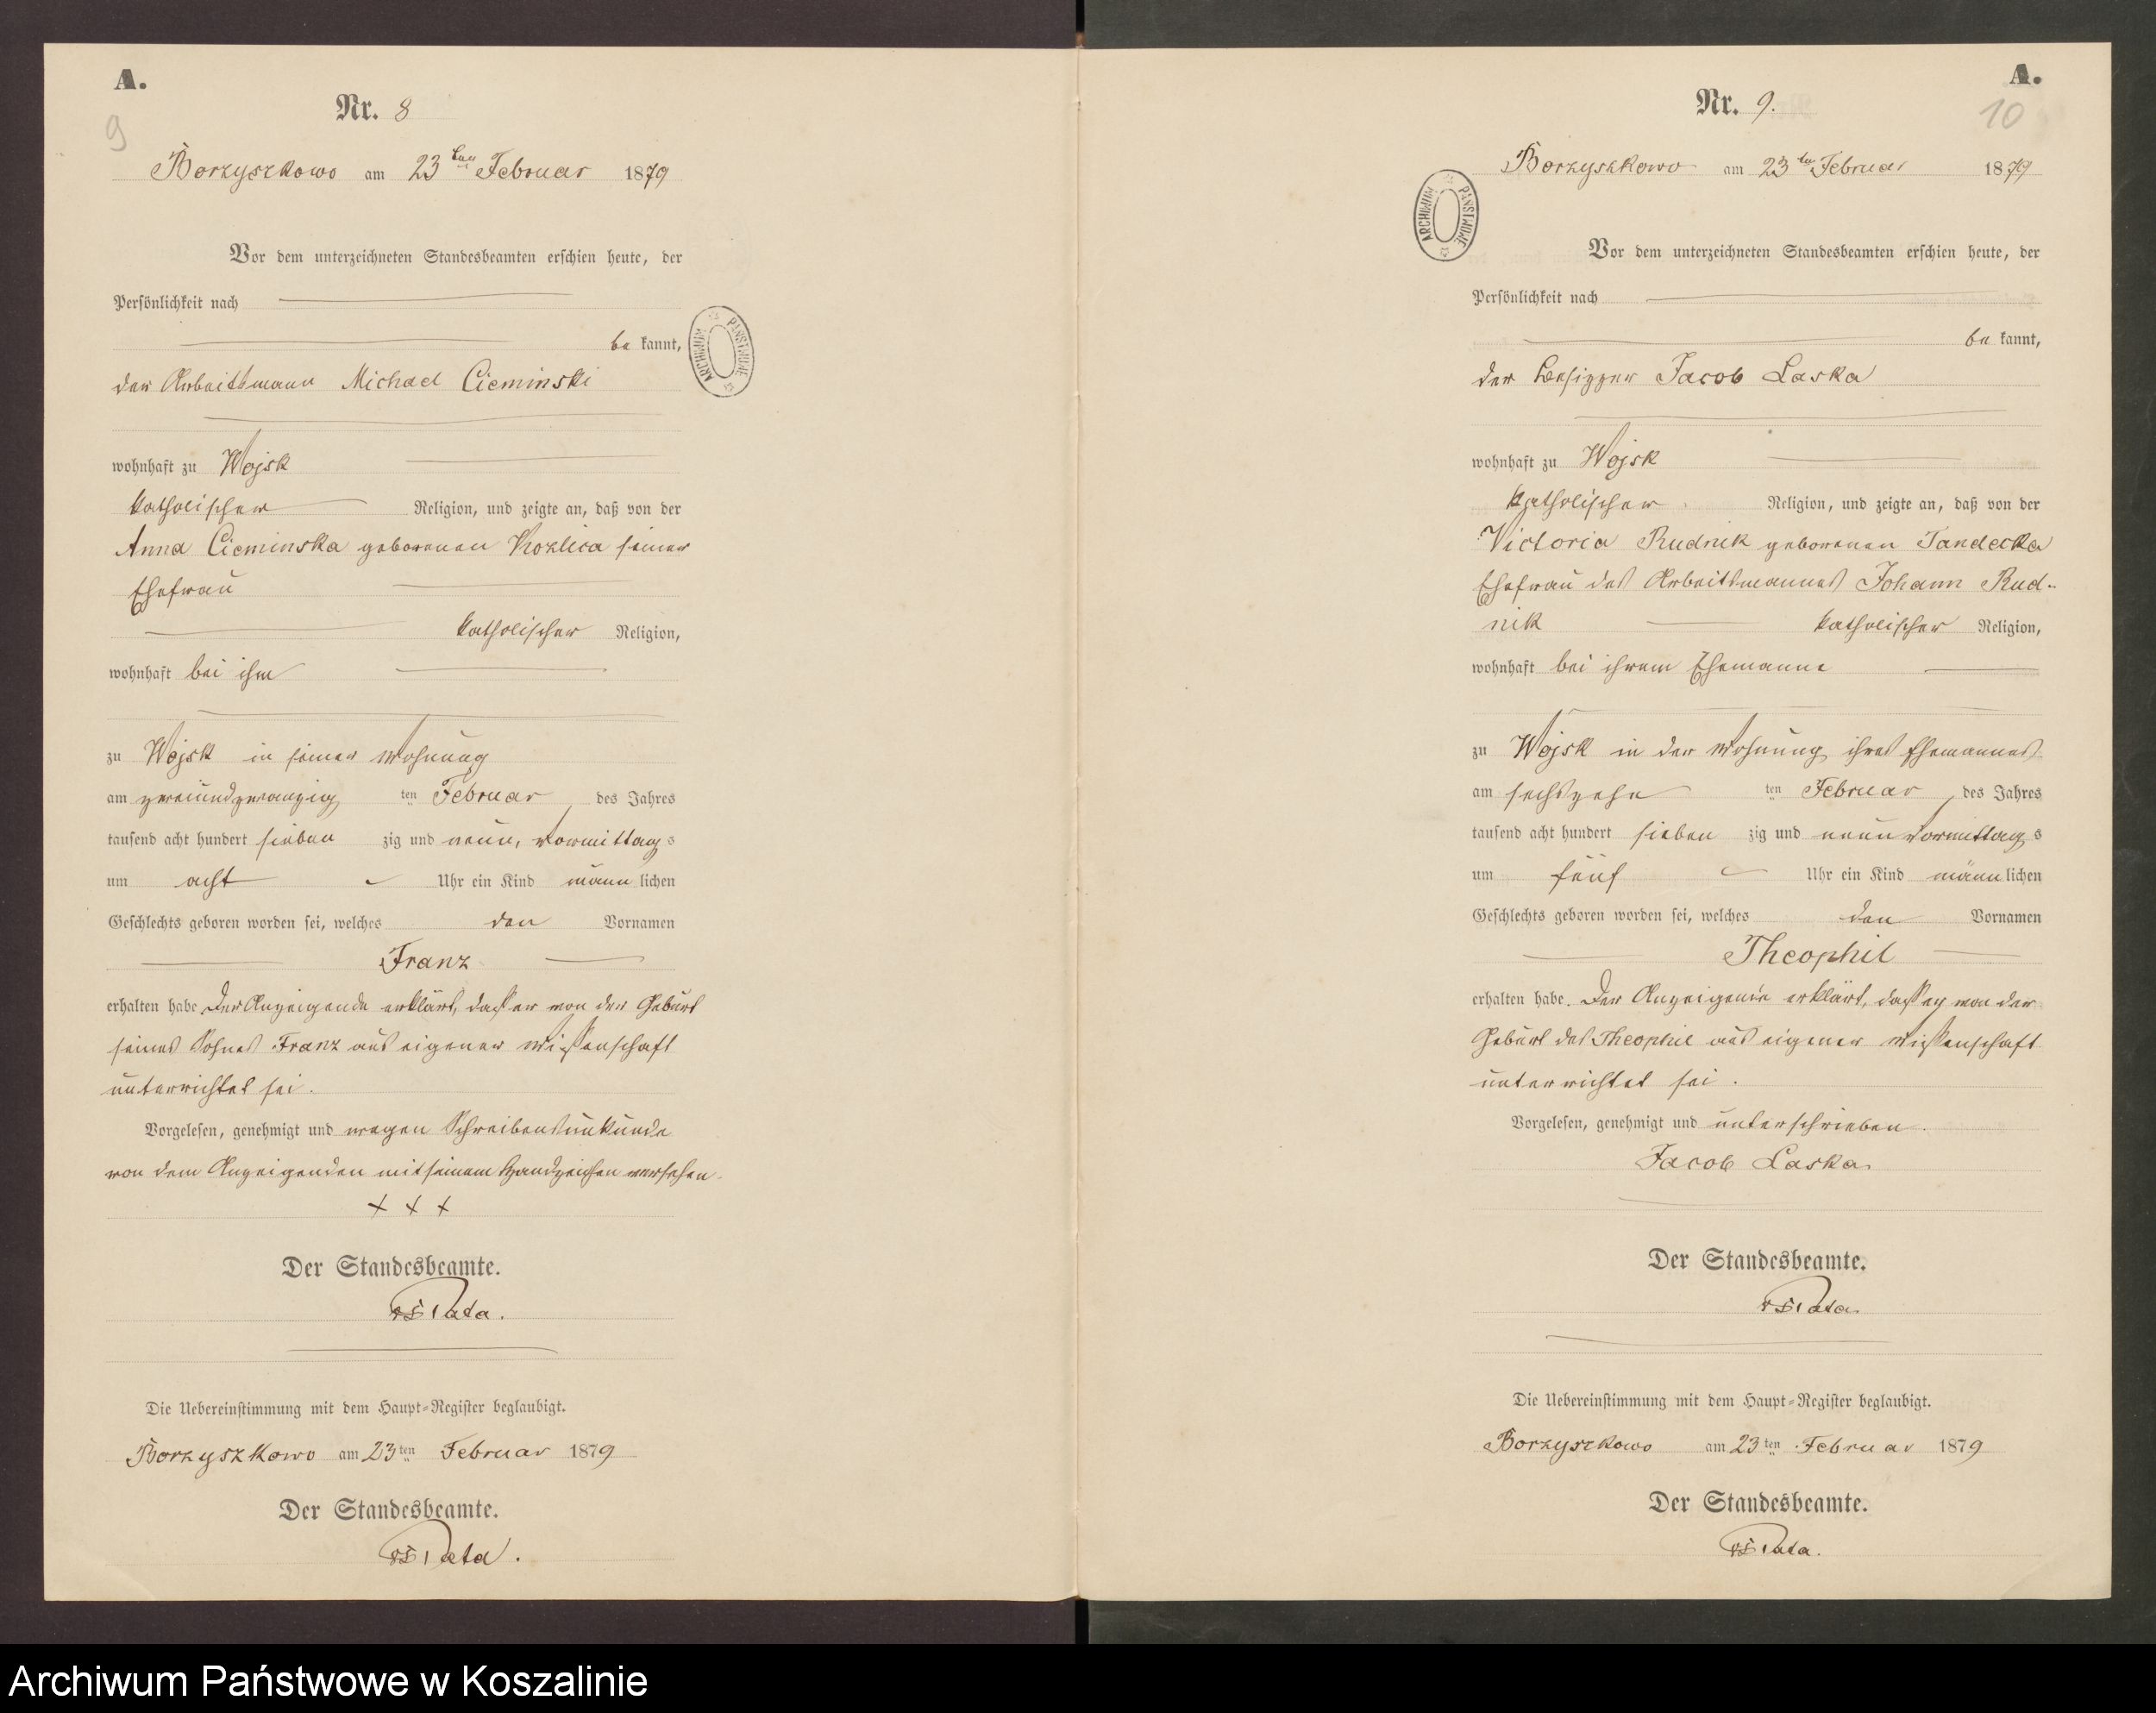 A.
9
Nr. 8
Borzyszkowo am 23ten Februar 1879
Vor dem unterzeichneten Standesbeamten erschien heute, der
Persönlichkeit nach
be kannt,
der Arbeitsmann Michael Cieminski
wohnhaft zu Wojsk
katholischer Religion, und zeigte an, daß von der
Anna Cieminska geborenen Kozlica seiner
Ehefrau
katholischer Religion,
wohnhaft bei ihm
zu Wojsk in seiner Wohnung
am zweiundzwanzig ten Februar des Jahres
tausend acht hundert sieben zig und neun, Vormittag s
um acht Uhr ein Kind männ lichen
Geschlechts geboren worden sei, welches den Vornamen
Franz
erhalten habe Der Anzeigende erklärt, dass er von der Geburt
seines Sohnes Franz aus eigener Wissenschaft
unterrichtet sei.
Vorgelesen, genehmigt und wegen Schreibensunkunde
von dem Anzeigenden mit seinem Handzeichen versehen.
+ + +
Der Standesbeamte.
Pata.
Die Uebereinstimmung mit dem Haupt-Register beglaubigt.
Borzyszkowo am 23ten Februar 1879
Der Standesbeamte.
Pata.
A.
10
Nr. 9.
Borzyszkowo am 23ten Februar 1879
Vor dem unterzeichneten Standesbeamten erschien heute, der
Persönlichkeit nach
be kannt,
der Besitzer Jacob Laska
wohnhaft zu Wojsk
katholischer Religion, und zeigte an, daß von der
Victoria Rudnik geborenen Jandecka
Ehefrau des Arbeitsmannes Johann Rud-
nik katholischer Religion,
wohnhaft bei ihrem Ehemanne
zu Wojsk in der Wohnung ihres Ehemannes
am sechszehn ten Februar des Jahres
tausend acht hundert sieben zig und neun Vormittag s
um fünf Uhr ein Kind männ lichen
Geschlechts geboren worden sei, welches den Vornamen
Theophil
erhalten habe. Der Anzeigende erklärt, dass er von der
Geburt des Theophil aus eigener Wissenschaft
unterrichtet sei.
Vorgelesen, genehmigt und unterschrieben.
Jacob Laska
Der Standesbeamte.
Pata.
Die Uebereinstimmung mit dem Haupt-Register beglaubigt.
Borzyszkowo am 23ten Februar 1879
Der Standesbeamte.
Pata.
ARCHIWUM PAŃSTWOWE
ARCHIWUM PAŃSTWOWE
Archiwum Państwowe w Koszalinie